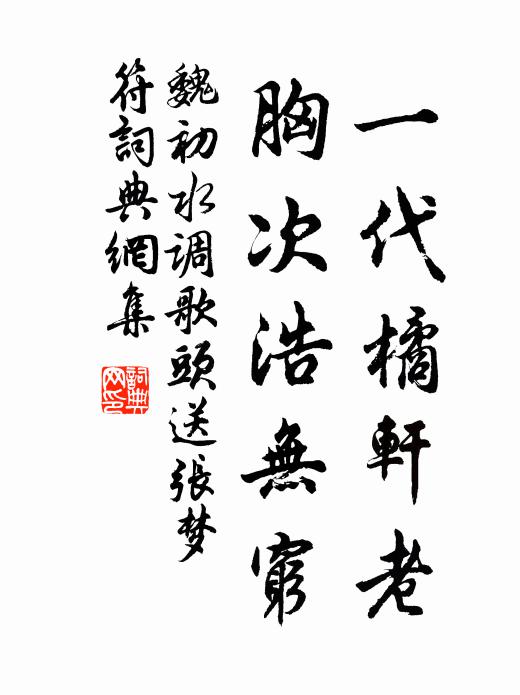 一代橘軒老
胸次浩無窮
魏初水调歌頭送張梦
符詞典網集
詞典網印